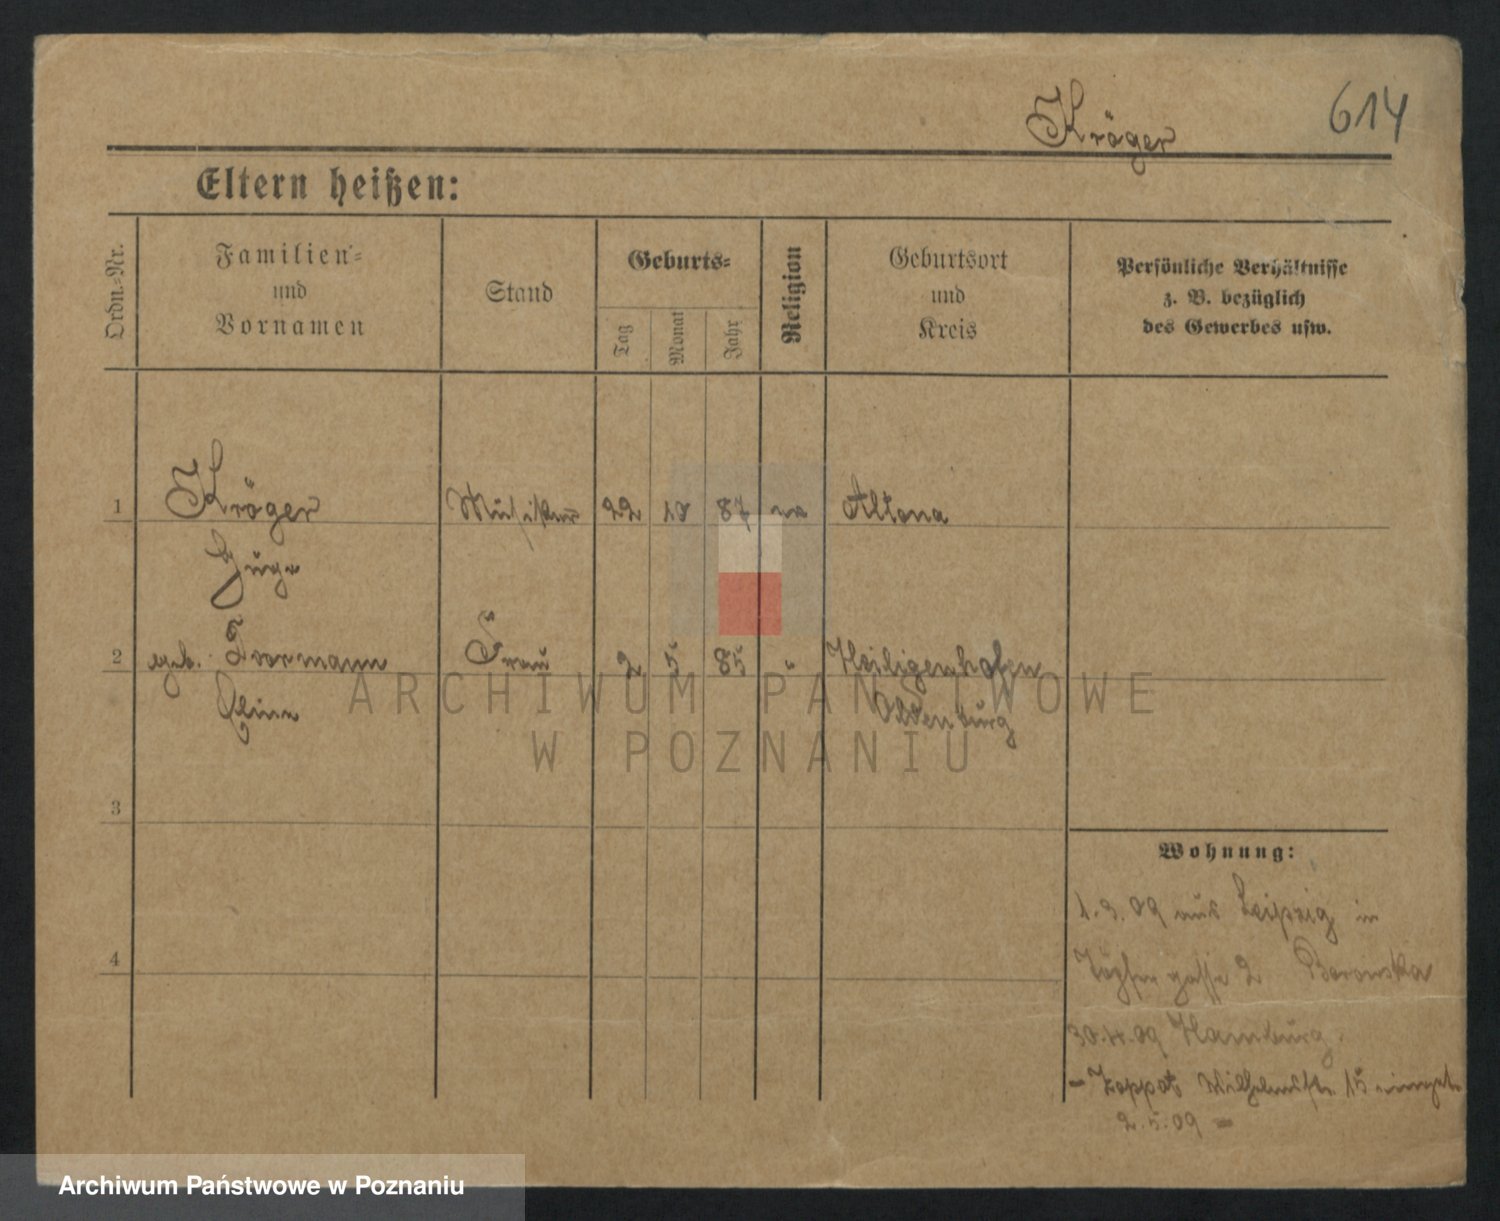 Kröger 614
Eltern heißen:
Ordn.-Nr.
Familien-
und
Vornamen
Stand
Geburts-
Tag
Monat
Jahr
Religion
Geburtsort
und
Kreis
Persönliche Verhältnisse
z. B. bezüglich
des Gewerbes usw.
1 Kröger Musiker 22 10 87 ev Altona
Hugo
2 geb. Frau 2 5 85 " Heiligenhafen
Oldenburg
3
4
Wohnung:
1.3.09 aus Leipzig in
Töpfergasse 2 Borowska
30.4.09 Hamburg
- Zoppot Wilhelmstr. 15
2.5.09 -
ARCHIWUM PAŃSTWOWE
W POZNANIU
Archiwum Państwowe w Poznaniu